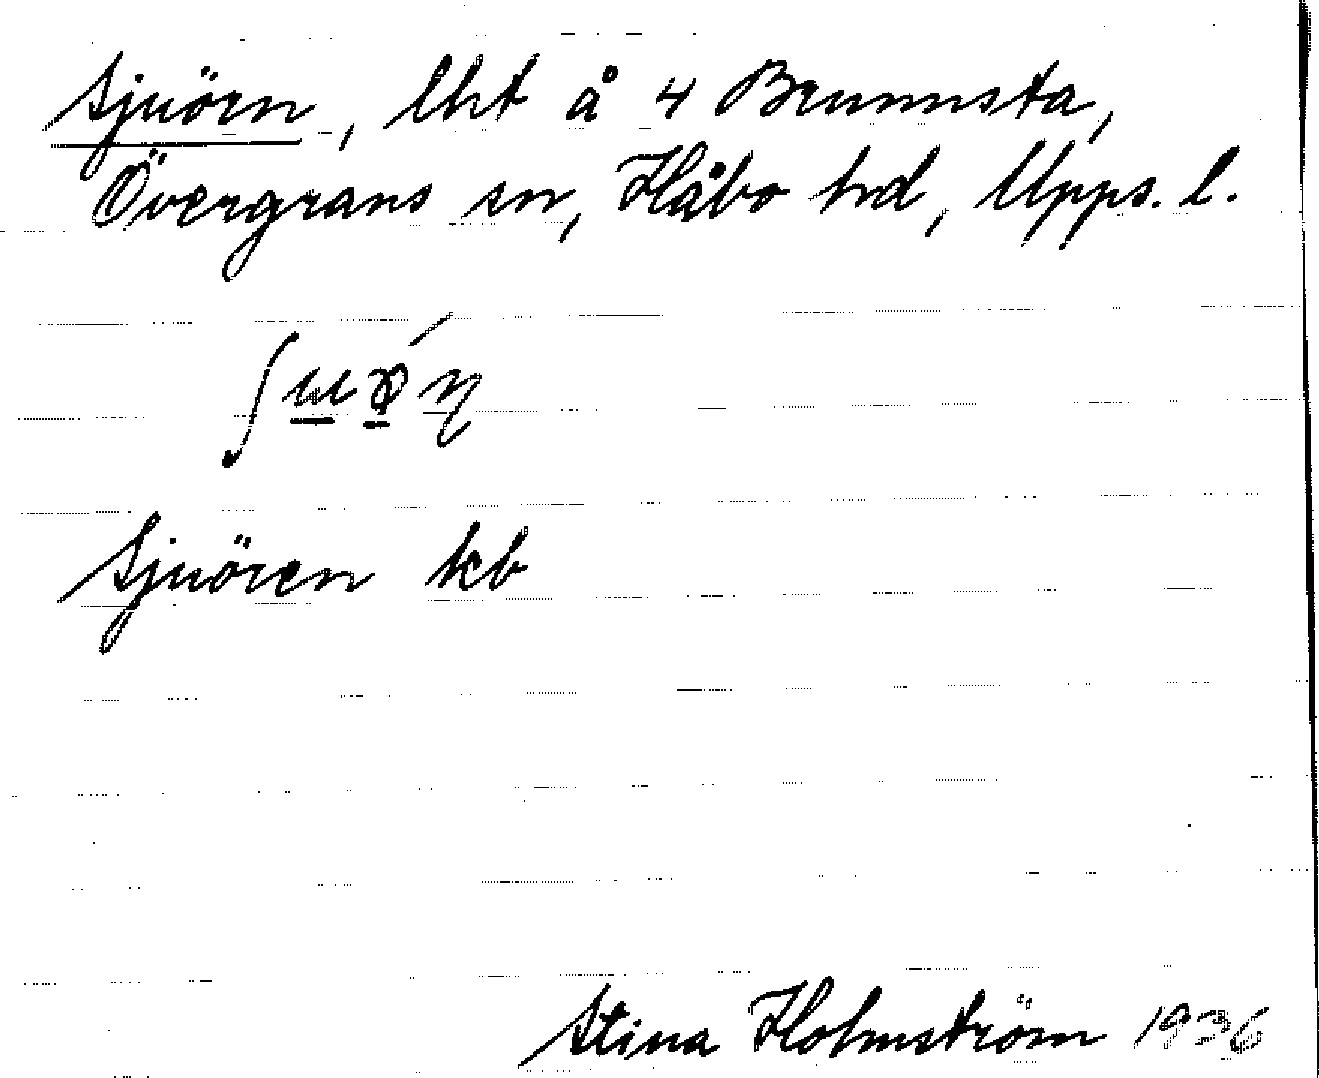 Sjuörn, lht å 4 Brunnsta,
Övergrans sn, Håbo hd, Upps. l.
Sjuören kb
Stina Holmström 1936